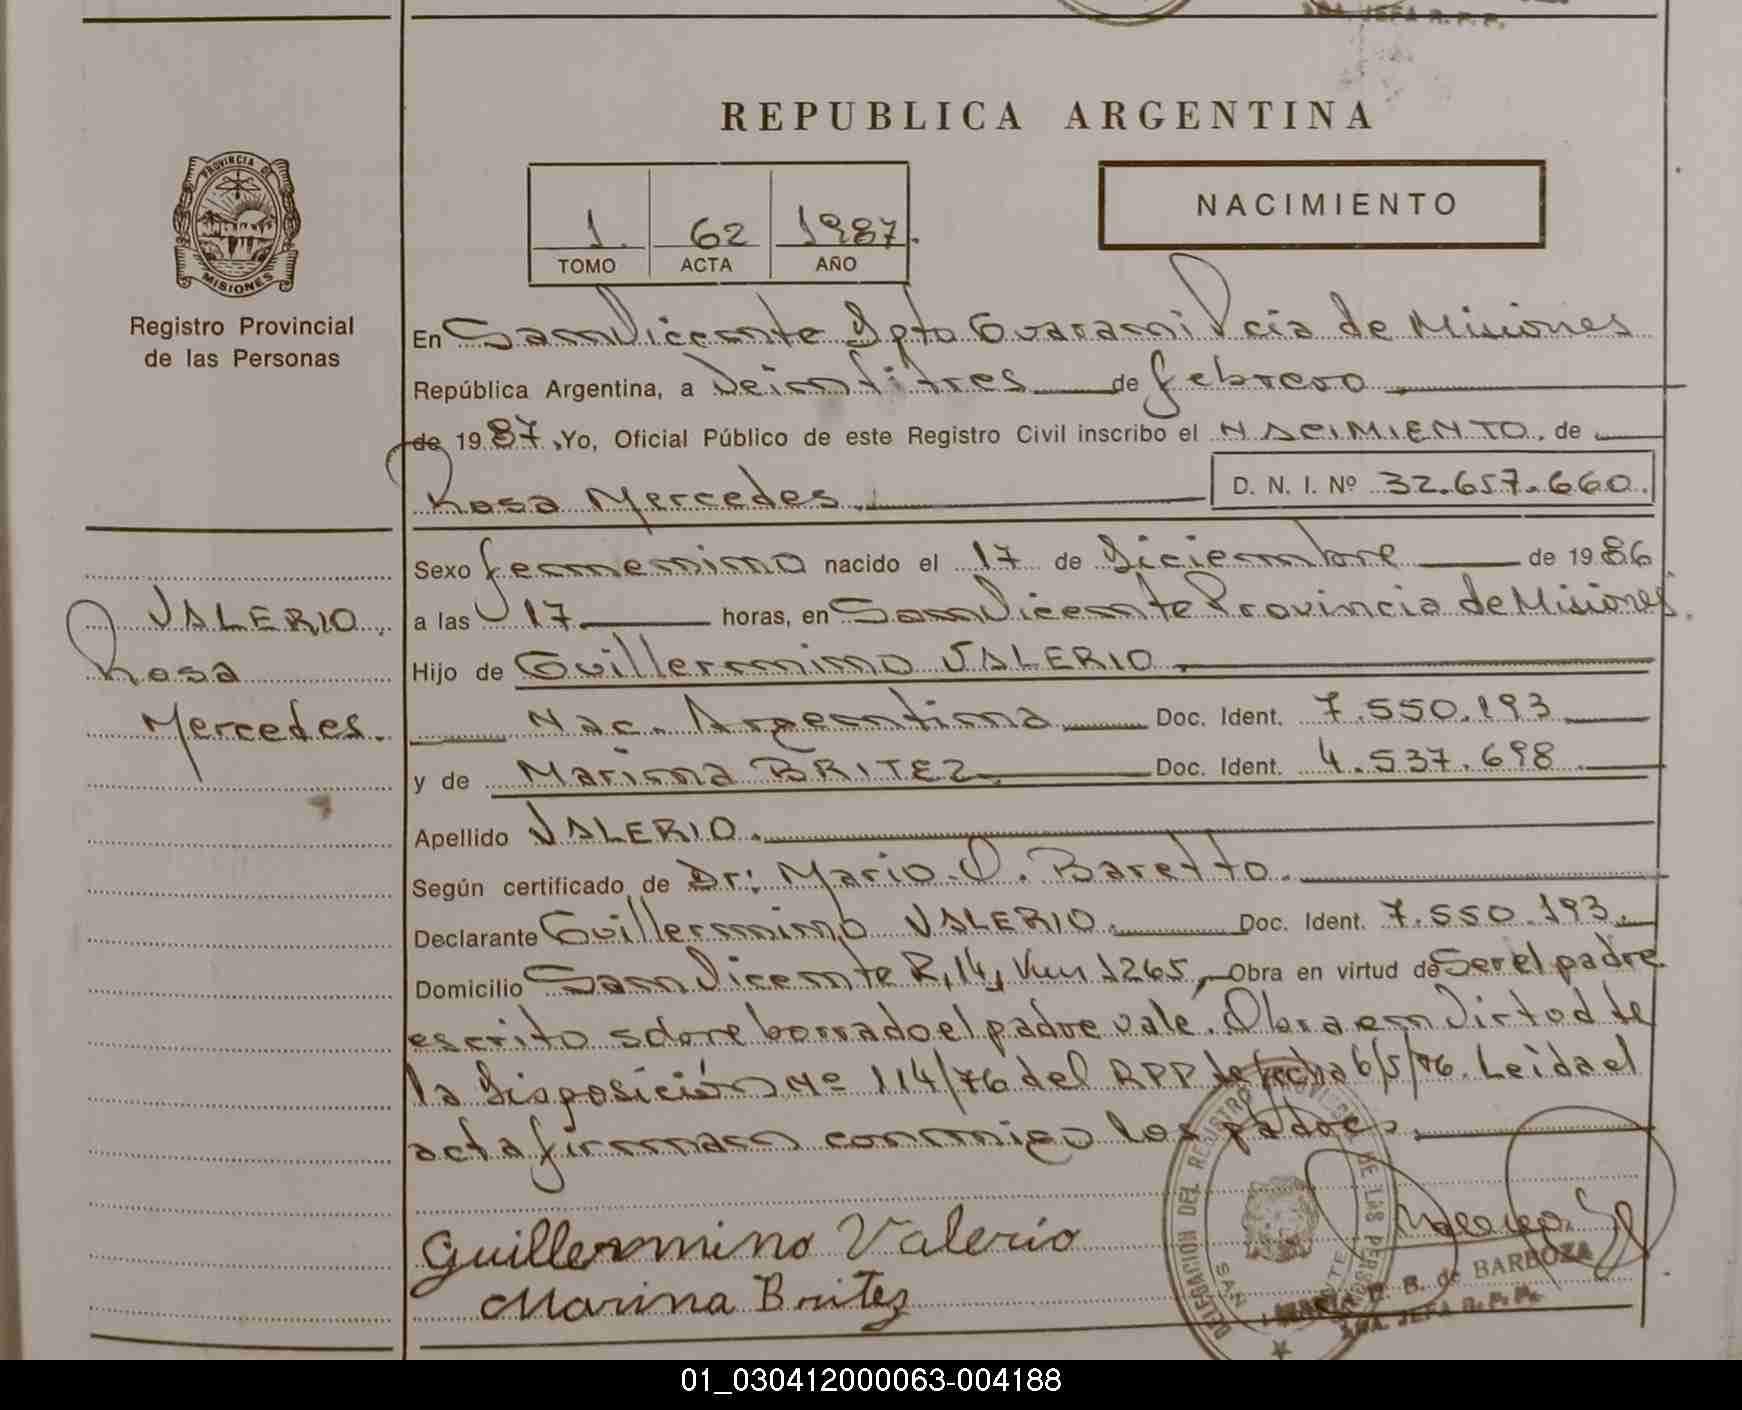 REPUBLICA ARGENTINA
PROVINCIA DE
MISIONES
Registro Provincial
de las Personas
1. 62 1987.
TOMO ACTA AÑO
NACIMIENTO
En San Vicente Dpto Guarani Pcia de Misiones
República Argentina, a Veintitres de febrero
de 1987, Yo, Oficial Público de este Registro Civil inscribo el NACIMIENTO. de
Rosa Mercedes. D. N. I. Nº 32.657.660.
Sexo femenino nacido el 17 de Diciembre de 1986
a las 17 horas, en San Vicente Provincia de Misiones.
Hijo de Guillermino VALERIO.
Nac. Argentina Doc. Ident. 7.550.193
y de Marina BRITEZ. Doc. Ident. 4.537.698
Apellido VALERIO.
Según certificado de Dr: Mario. O. Baretto.
Declarante Guillermino VALERIO. Doc. Ident. 7.550.193.
Domicilio San Vicente R, 14, Km 1265, Obra en virtud de Ser el padre
escrito sobre borrado el padre vale. Obra en Virtud de
la Disposición Nº 114/76 del RPP de fecha 6/5/76. Leida el
acta firman conmigo los padres.
VALERIO.
Rosa
Mercedes.
Guillermino Valerio
Marina Britez
DELEGACION DEL REGISTRO PROVINCIAL DE LAS PERSONAS
SAN VICENTE
MARIA B. de BARBOZA
JEFA R. P. P.
01_030412000063-004188